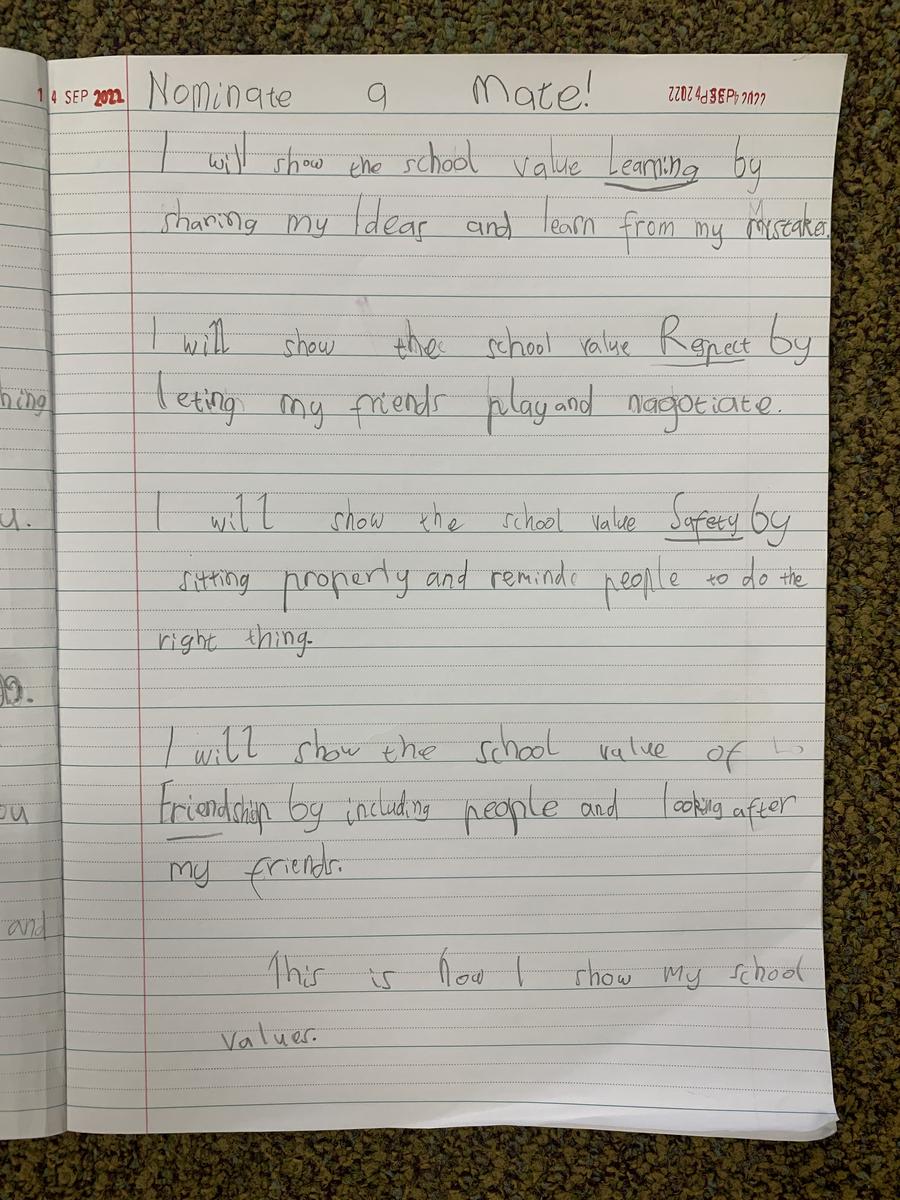 14 SEP 2022
Nominate a Mate!
I will show the school value Learning by
sharing my Ideas and learn from my Mistakes.
I will show the school value Respect by
leting my friends play and nagotiate.
I will show the school value Safety by
sitting property and reminde people to do the
right thing.
I will show the school value of
Friendship by including people and looking after
my friends.
This is how I show my school
values.
hing
u.
ou
and